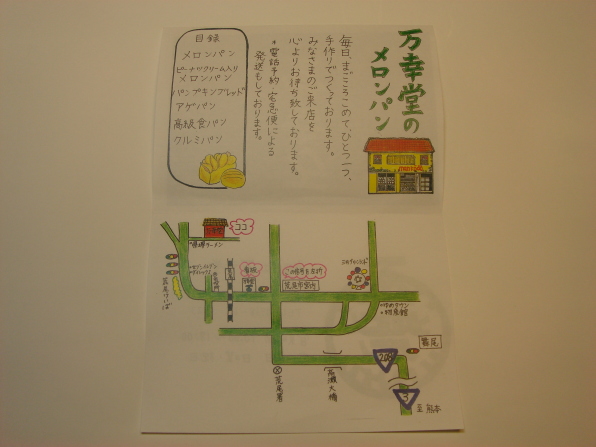 万幸堂の
メロンパン
毎日、まごころこめて、ひとつ一つ、
手作りでつくっております。
みなさまのご来店を
心よりお待ち致しております。
＊電話予約 宅急便による
発送もしております。
目録
メロンパン
ピーナツクリーム入り
メロンパン
パンプキンブレッド
アゲパン
高級食パン
クルミパン
ココ
ラーメン
荒尾けいば
看板
三井グリーンランド
ゆめタウン
荒尾署
大橋
208
3
至 熊本